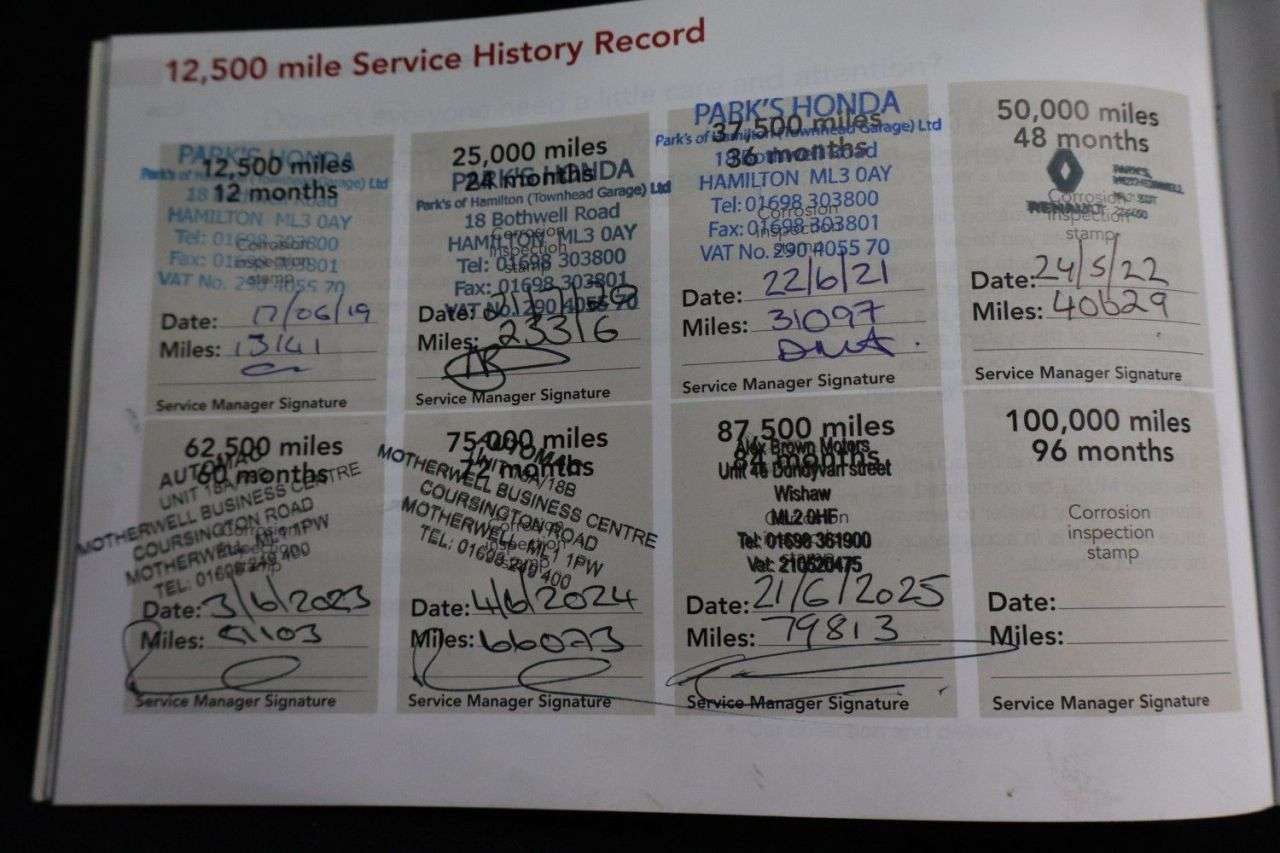 12,500 mile Service History Record
PARK'S HONDA
12,500 miles
12 months
18 Bothwell Road
HAMILTON ML3 0AY
Tel: 01698 303800
Fax: 01698 303801
VAT No. 290 4055 70
Corrosion
inspection
stamp
Date: 17/06/19
Miles: 13141
Service Manager Signature
25,000 miles
24 months
PARK'S HONDA
Park's of Hamilton (Townhead Garage) Ltd
18 Bothwell Road
HAMILTON ML3 0AY
Tel: 01698 303800
Fax: 01698 303801
VAT No. 290 4055 70
Corrosion
inspection
stamp
Date:
Miles: 23316
Service Manager Signature
PARK'S HONDA
Park's of Hamilton (Townhead Garage) Ltd
37,500 miles
36 months
18 Bothwell Road
HAMILTON ML3 0AY
Tel: 01698 303800
Fax: 01698 303801
VAT No. 290 4055 70
Corrosion
inspection
stamp
Date: 22/6/21
Miles: 31097
Service Manager Signature
50,000 miles
48 months
PARK'S
MOTHERWELL
RENAULT
Corrosion
inspection
stamp
Date: 24/5/22
Miles: 40629
Service Manager Signature
62,500 miles
60 months
AUTOMAC
UNIT 18A/18B
MOTHERWELL BUSINESS CENTRE
COURSINGTON ROAD
MOTHERWELL ML1 1PW
TEL: 01698 249 400
Corrosion
inspection
stamp
Date: 3/6/2023
Miles: 51103
Service Manager Signature
75,000 miles
72 months
AUTOMAC
UNIT 18A/18B
MOTHERWELL BUSINESS CENTRE
COURSINGTON ROAD
MOTHERWELL ML1 1PW
TEL: 01698 249 400
Corrosion
inspection
stamp
Date: 4/6/2024
Miles: 66073
Service Manager Signature
87,500 miles
84 months
Alex Brown Motors
Unit Street
Wishaw
ML2 0HF
Tel: 01698 361900
Vat: 210520475
Corrosion
inspection
stamp
Date: 21/6/2025
Miles: 79813
Service Manager Signature
100,000 miles
96 months
Corrosion
inspection
stamp
Date:
Miles:
Service Manager Signature